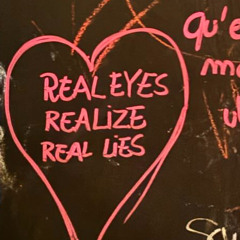 REAL EYES
REALIZE
REAL LIES
qu'e